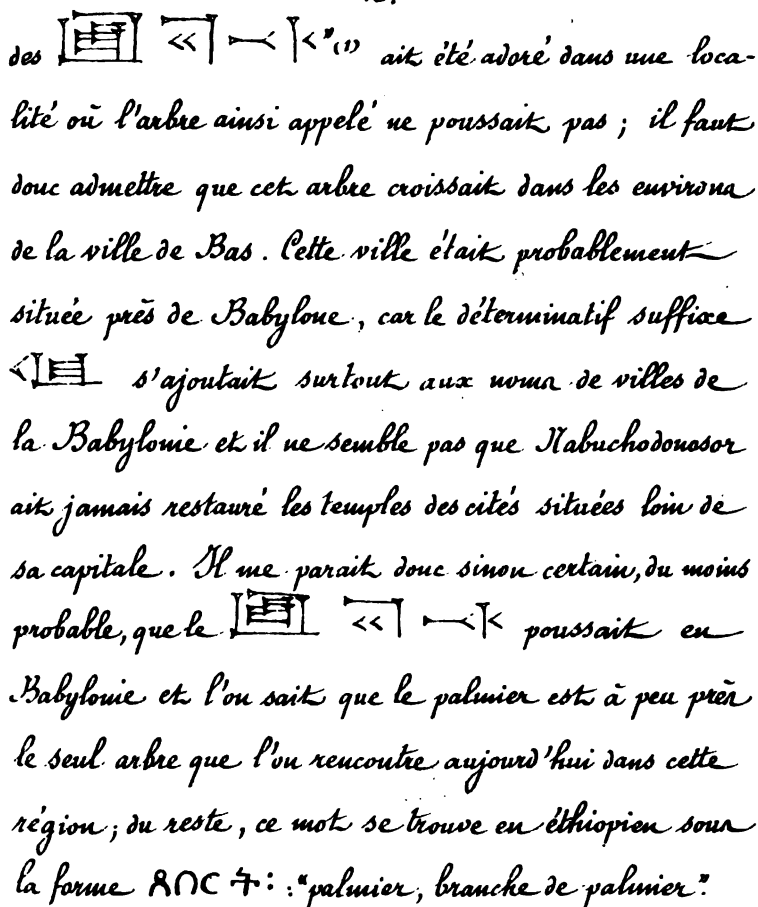 des " (1) ait été adoré dans une loca-
lité où l'arbre ainsi appelé ne poussait pas ; il faut
donc admettre que cet arbre croissait dans les environs
de la ville de Bas. Cette ville était probablement
située près de Babylone, car le déterminatif suffixe
s'ajoutait surtout aux noms de villes de
la Babylonie et il ne semble pas que Nabuchodonosor
ait jamais restauré les temples des cités situées loin de
sa capitale. Il me parait donc sinon certain, du moins
probable, que le poussait en
Babylonie et l'on sait que le palmier est à peu près
le seul arbre que l'on rencontre aujourd'hui dans cette
région ; du reste, ce mot se trouve en éthiopien sous
la forme ጸበርት፡ : "palmier, branche de palmier".